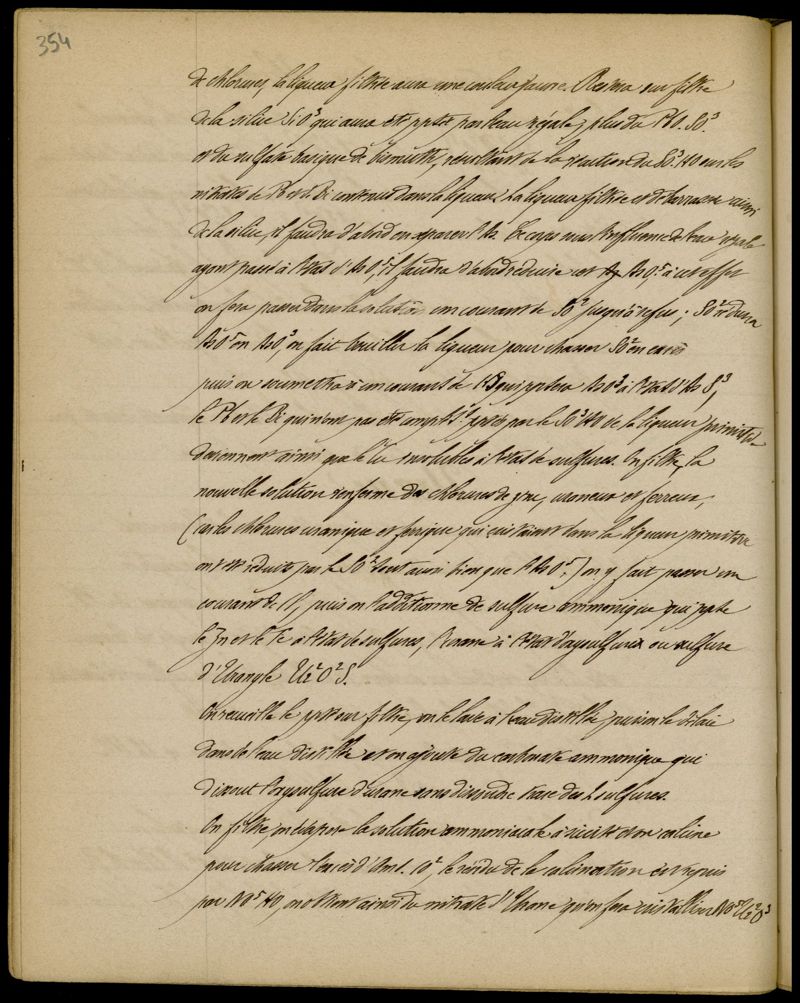 354
de chlorures, la liqueur filtrée aura une couleur jaune. Restera sur filtre
de la silice SiO³ qui aura été pptée par l'eau régale, plus du PbO. SO³.
et du sulfate basique de bismuth, résultant de la réaction du SO³.HO sur les
nitrates de Pb et de Bi contenus dans la liqueur. La liqueur filtrée et débarrassée ainsi
de la silice, il faudra d'abord en séparer l'As. Ce corps sous l'influence de l'eau régale
ayant passé à l'état d'AsO⁵, il faudra d'abord réduire cet AsO⁵, à cet effet
on fera passer dans la solution un courant de SO² jusqu'à refus; SO² réduira
AsO⁵ en AsO³, on fait bouillir la liqueur pour chasser SO² en excès
puis on soumettra à un courant de HS qui pptera AsO³ à l'état d'AsS³,
le Pb et le Bi qui n'ont pas été complt. pptés par le SO³HO de la liqueur primitive
deviennent ainsi que le Cu insolubles à l'état de sulfures. On filtre, la
nouvelle solution renferme des chlorures de zinc, uraneux et ferreux,
(car les chlorures uranique et ferrique qui existaient dans la liqueur primitive
ont été réduits par le SO² tout aussi bien que l'AsO⁵.) on y fait passer un
courant de Cl, puis on l'additionne de sulfure ammonique qui ppte
le Zn et le Fe à l'état de sulfures, l'urane à l'état d'oxysulfure ou sulfure
d'Uranyle Ur²O²S.
On recueille le ppté sur filtre, on le lave à l'eau distillée, puis on le délaie
dans de l'eau distillée et on ajoute du carbonate ammonique qui
dissout l'oxysulfure d'urane sans dissoudre trace des 2 sulfures.
On filtre, on évapore la solution ammoniacale à siccité et on calcine
pour chasser l'excès d'Am. CO², le résidu de la calcination est repris
par NO⁵HO, on obtient ainsi du nitrate d'Urane qu'on fera cristalliser NO⁵Ur²O³